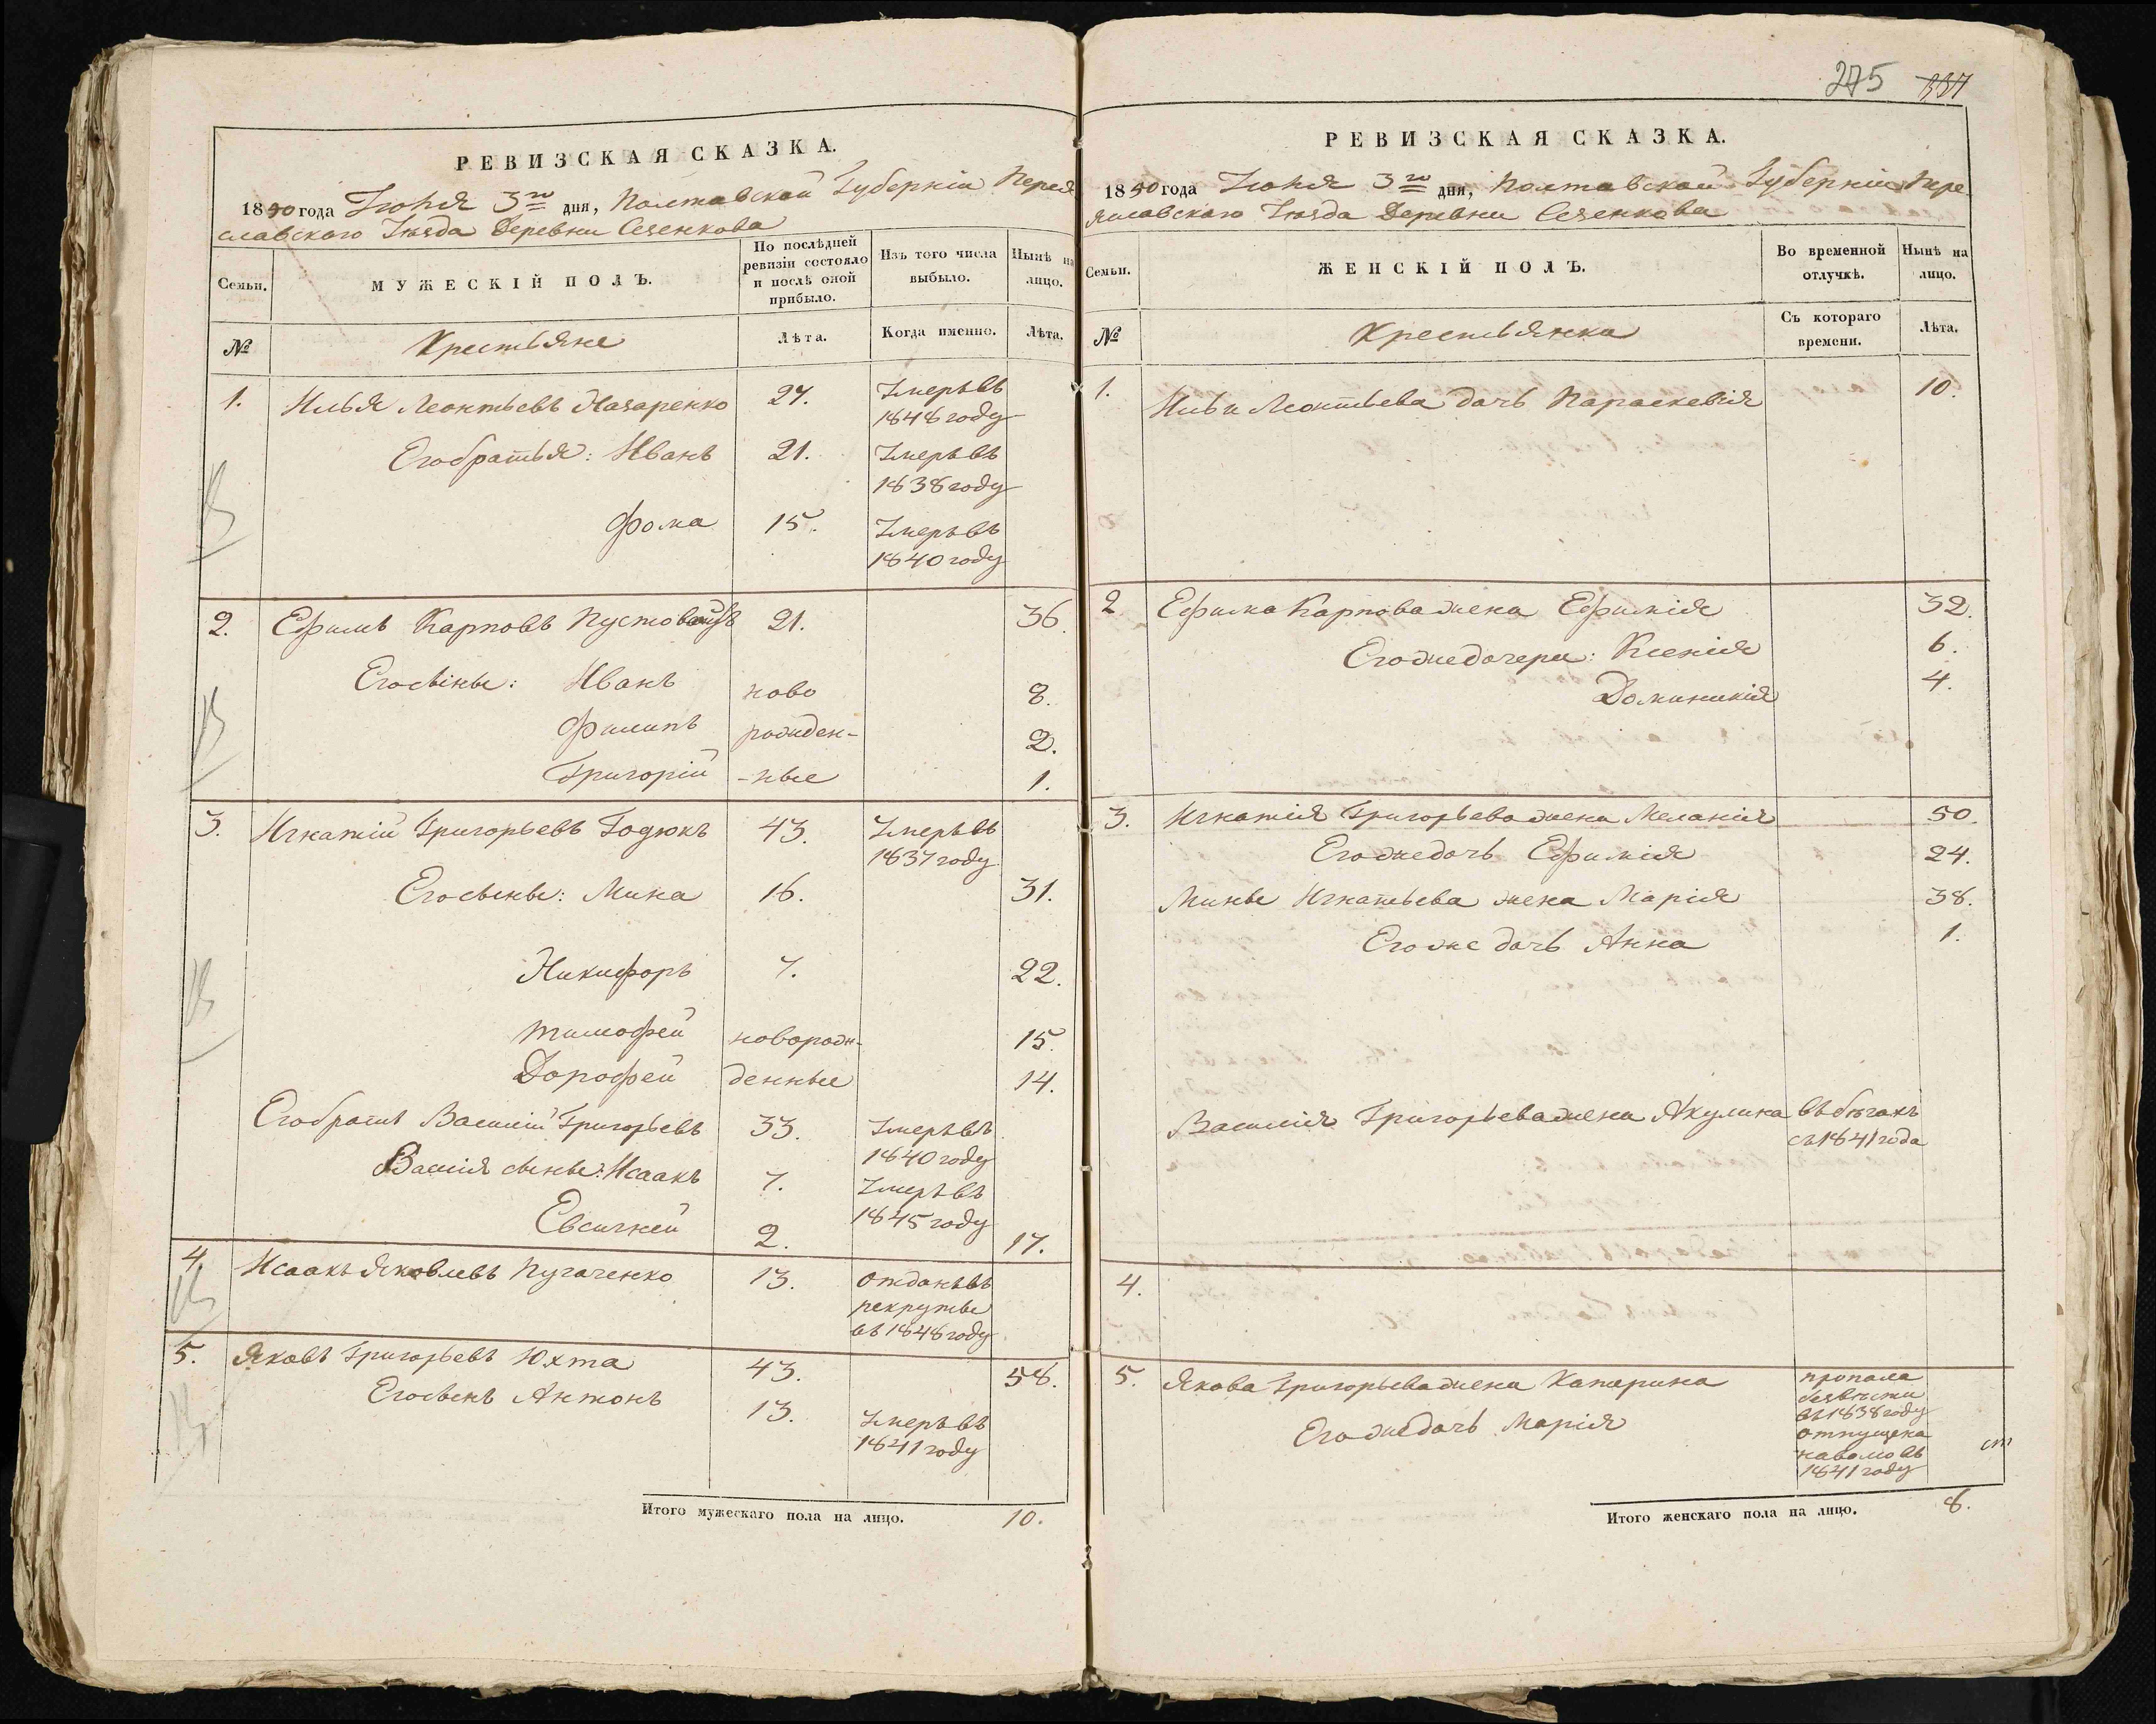 275 337
РЕВИЗСКАЯ СКАЗКА.
1850 года Іюня 3го дня, Полтавской Губерніи Перея
славскаго Уѣзда Деревни Сеченкова
Семьи.
МУЖЕСКІЙ ПОЛЪ.
По послѣдней
ревизіи состояло
и послѣ оной
прибыло.
Изъ того числа
выбыло.
Нынѣ на
лицо.
№ Крестьяне Лѣта. Когда именно. Лѣта.
1. Илья Леонтьевъ Назаренко 27. Умеръ въ
1848 году
Его братья: Иванъ 21. Умеръ въ
1838 году
Фома 15. Умеръ въ
1840 году
2. Ефимъ Карповъ 21. 36.
Его сыны: Иванъ ново 8.
Филипъ рожден- 2.
Григорій -ные 1.
3. Игнатій Григорьевъ Годюкъ 43. Умеръ въ
1837 году
Его сыны: Мина 16. 31.
Никифоръ 7. 22.
Тимофей новорож- 15.
Дорофей денные 14.
Его братъ Василій Григорьевъ 33. Умеръ въ
1840 году
Василія сыны: Исаакъ 7. Умеръ въ
1845 году
Евсигней 2. 17.
4. Исаакъ Яковлевъ Пугаченко 13. отданъ въ
рекруты
въ 1848 году
5. Яковъ Григорьевъ Юхта 43. 58.
Его сынъ Антонъ 13. Умеръ въ
1841 году
Итого мужескаго пола на лицо. 10.
РЕВИЗСКАЯ СКАЗКА.
1850 года Іюня 3го дня, Полтавской Губерніи Пере
яславскаго Уѣзда Деревни Сеченкова
Семьи.
ЖЕНСКІЙ ПОЛЪ.
Во временной
отлучкѣ.
Нынѣ на
лицо.
№ Крестьянки
Съ котораго
времени.
Лѣта.
1. Ильи Леонтьева дочь Параскевія 10.
2 Ефима Карпова жена Ефимія 32.
Его же дочери: Ксенія 6.
Доминикія 4.
3. Игнатія Григорьева жена Меланія 50.
Его же дочь Ефимія 24.
Мины Игнатьева жена Марія 38.
Его же дочь Анна 1.
Василія Григорьева жена Акулина въ бѣгахъ
съ 1841 года
4.
5. Якова Григорьева жена Катарина пропала
безвѣсти
въ 1838 году
Его же дочь Марія отпущена
на волю въ
1841 году
Итого женскаго пола на лицо. 8.